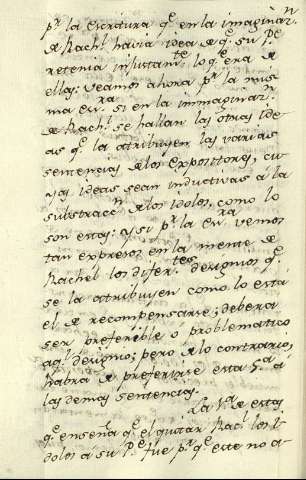 pr. la escritura qe. en la imaginacn.
de Rachl. havia idea de qe. su Pe.
retenia injustamte. lo qe. era de
ellas: veamos ahora pr. la mis
ma escra. si en la immaginacn.
de Rachl. se hallan las otras ide
as qe. la atribuyen las varias
sentencias de los Expositores, cu
yas ideas sean inductivas á la
substraccn. de los idolos, como lo
son estas: y si pr. la escra. vemos
tan expreso en la mente de
Rachel los difertes. designios qe.
se la atribuyen como lo está
el de recompensarse; deberá
ser preferible ó problematico
aql. designio; pero de lo contrario,
habra de preferirse esta Sa. á
las demas sentencias.
La Va. de estas
qe. enseña qe. el quitar Rachl. los I
dolos á su Pe. fue pr. qe. este no a-